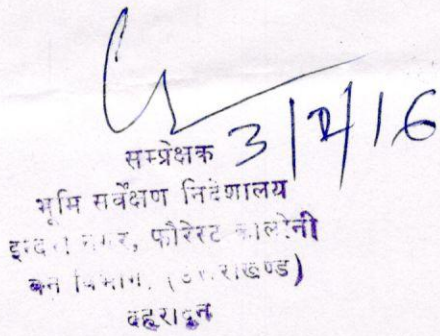 3/2/16
सम्प्रेक्षक
भूमि सर्वेक्षण निदेशालय
नगर, फौरेस्ट कालोनी
वन विभाग, (उत्तराखण्ड)
देहरादून